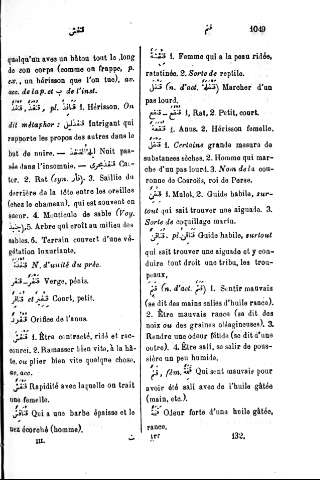 قنفش
قنم
1049
quelqu'un avec un bâton tout le long
de son corps (comme on frappe, p.
ex., un hérisson que l'on tue), av.
acc. de la p. et ب de l'inst.
قنفذ, pl. قنافذ 1. Hérisson. On
dit métaphor : Intrigant qui
rapporte les propos des autres dans le
but de nuire. — Nuit pas-
sée dans l'insomnie. — Ca-
stor. 2. Rat (syn. فأر). 3. Saillie du
derrière de la tête entre les oreilles
(chez le chameau), qui est souvent en
sueur. 4. Monticule de sable (Voy.
5. Arbre qui croît au milieu des
sables. 6. Terrain couvert d'une vé-
gétation luxuriante.
قنفذة N. d'unité du préc.
Verge, pénis.
et Court, petit.
Orifice de l'anus.
1. Être contracté, ridé et rac-
corni. 2. Ramasser bien vite, à la hâ-
te, ou plier bien vite quelque chose,
av. acc.
Rapidité avec laquelle on trait
une femelle.
Qui a une barbe épaisse et le
nez écorché (homme).
III.
1. Femme qui a la peau ridée,
ratatinée. 2. Sorte de reptile.
(n. d'act. ) Marcher d'un
pas lourd.
1. Rat, 2. Petit, court.
1. Anus. 2. Hérisson femelle.
1. Certaine grande mesure de
substances sèches. 2. Homme qui mar-
che d'un pas lourd. 3. Nom de la cou-
ronne de Cosroës, roi de Perse.
1. Mulot. 2. Guide habile, sur-
tout qui sait trouver une aiguade. 3.
Sorte de coquillage marin.
pl. Guide habile, surtout
qui sait trouver une aiguade et y con-
duire tout droit une tribu, les trou-
peaux.
قنم (n. d'act. قنم) 1. Sentir mauvais
(se dit des mains salies d'huile rance).
2. Être mauvais rance (se dit des
noix ou des graines oléagineuses). 3.
Rendre une odeur fétide (se dit d'une
outre). 4. Être sali, se salir de pous-
sière un peu humide.
قنم, fém. قنمة Qui sent mauvais pour
avoir été sali avec de l'huile gâtée
(main, etc.).
قنمة Odeur forte d'une huile gâtée,
rance.
132.